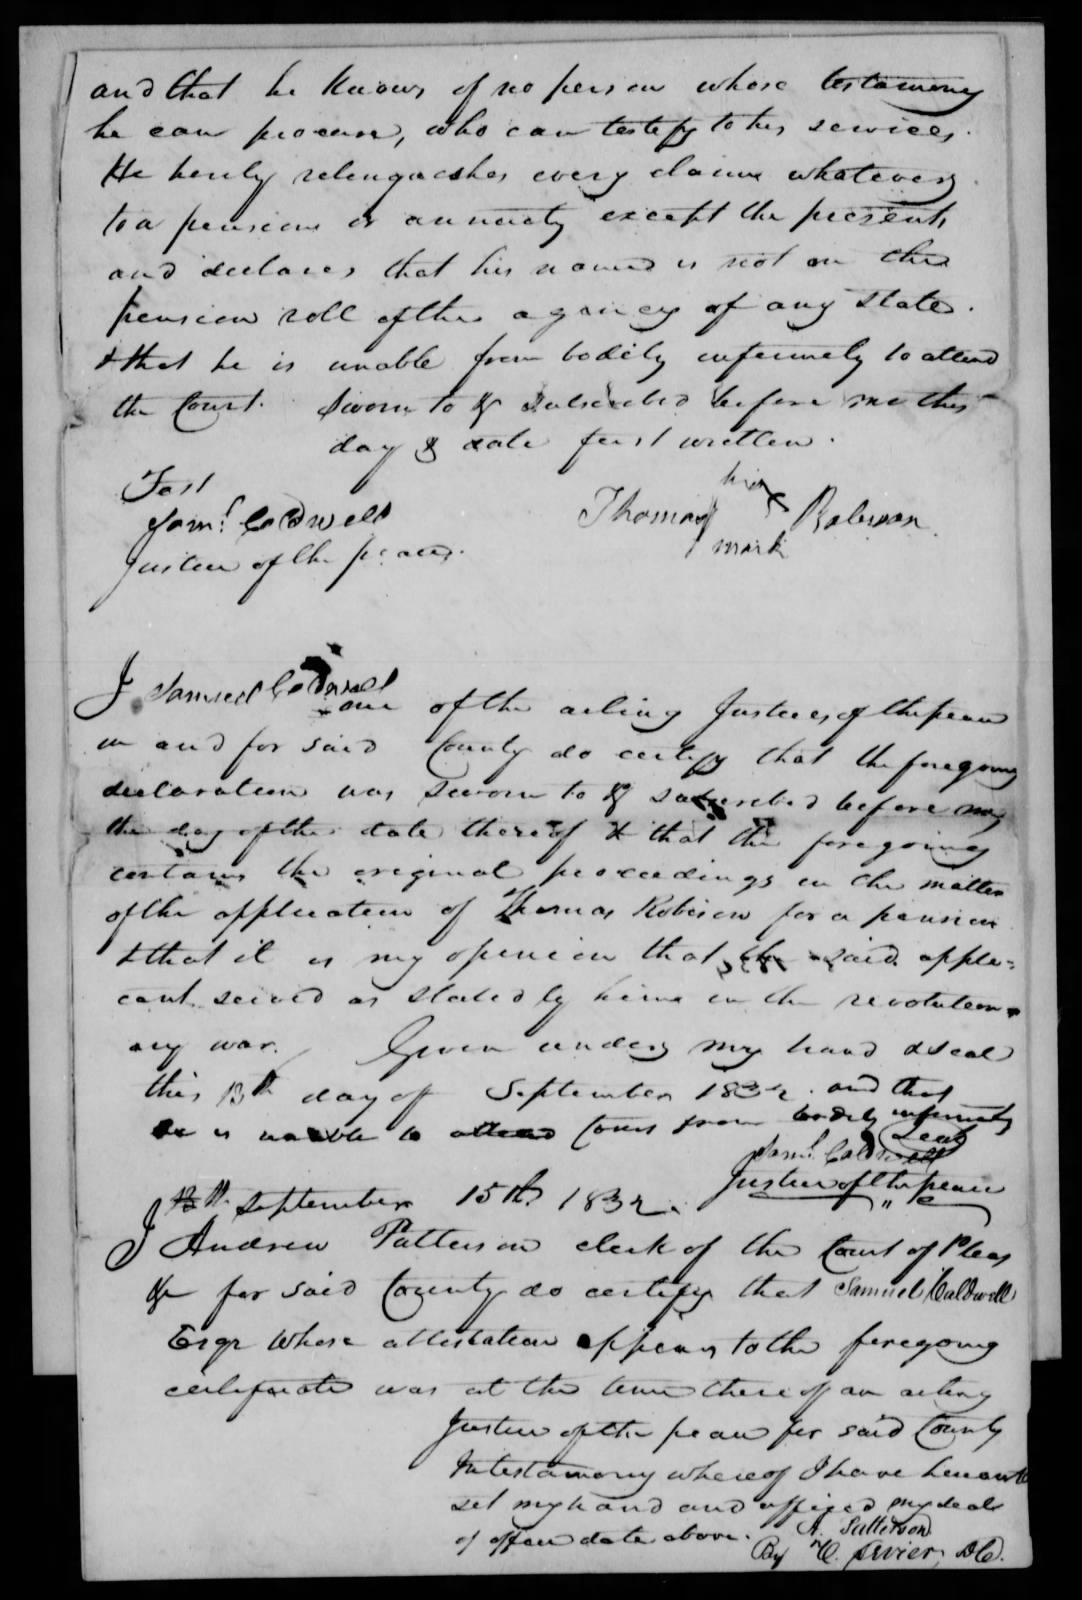 and that he knows of no person whose testamony
he can procure, who can testify to his services.
He hereby relenquishes every claim whatever
to a pension or annuity except the present
and declares that his name is not on the
pension roll of the agency of any State.
& that he is unable from bodily infermity to attend
the Court. Sworn to & Subscribed before me this
day & date first written.
Test
Saml Caldwell
Justice of the peace.
his
Thomas X Robison
mark
I Samuel Caldwell
one of the acting Justices of the peace
in and for said County do certify that the foregoing
declaration was sworn to & subscribed before me
the day of the date thereof & that the foregoing
contains the original proceedings in the matter
of the application of Thomas Robison for a pension
& that it is my opinion that the said appli=
cant served as stated by him in the revolution=
ary war. Given under my hand & seal
this 13th day of September 1832. and that
he is unable to attend Court from bodily infermity
Saml Caldwell Seal
Justice of the peace
September 15th 1832.
I Andrew Patterson clerk of the Court of Pleas
& for said County do certify that Samuel Caldwell
Esqr whose attestation appears to the foregoing
certificate was at the time thereof an acting
Justice of the peace for said County
In testamony whereof I have hereunto
set my hand and affixed my seal
of office date above.
A. Patterson
By C. DC.